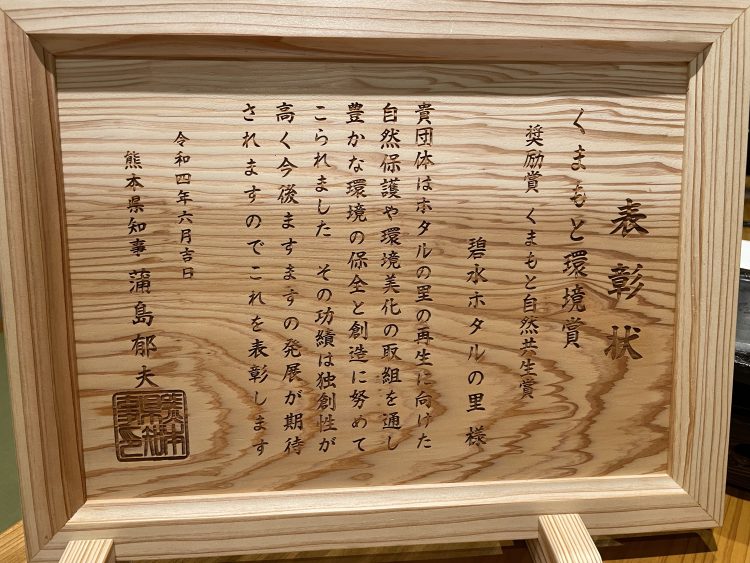 表彰状
くまもと環境賞
奨励賞 くまもと自然共生賞
碧水ホタルの里 様
貴団体はホタルの里の再生に向けた
自然保護や環境美化の取組を通し
豊かな環境の保全と創造に努めて
こられました その功績は独創性が
高く今後ますますの発展が期待
されますのでこれを表彰します
令和四年六月吉日
熊本県知事 蒲島郁夫